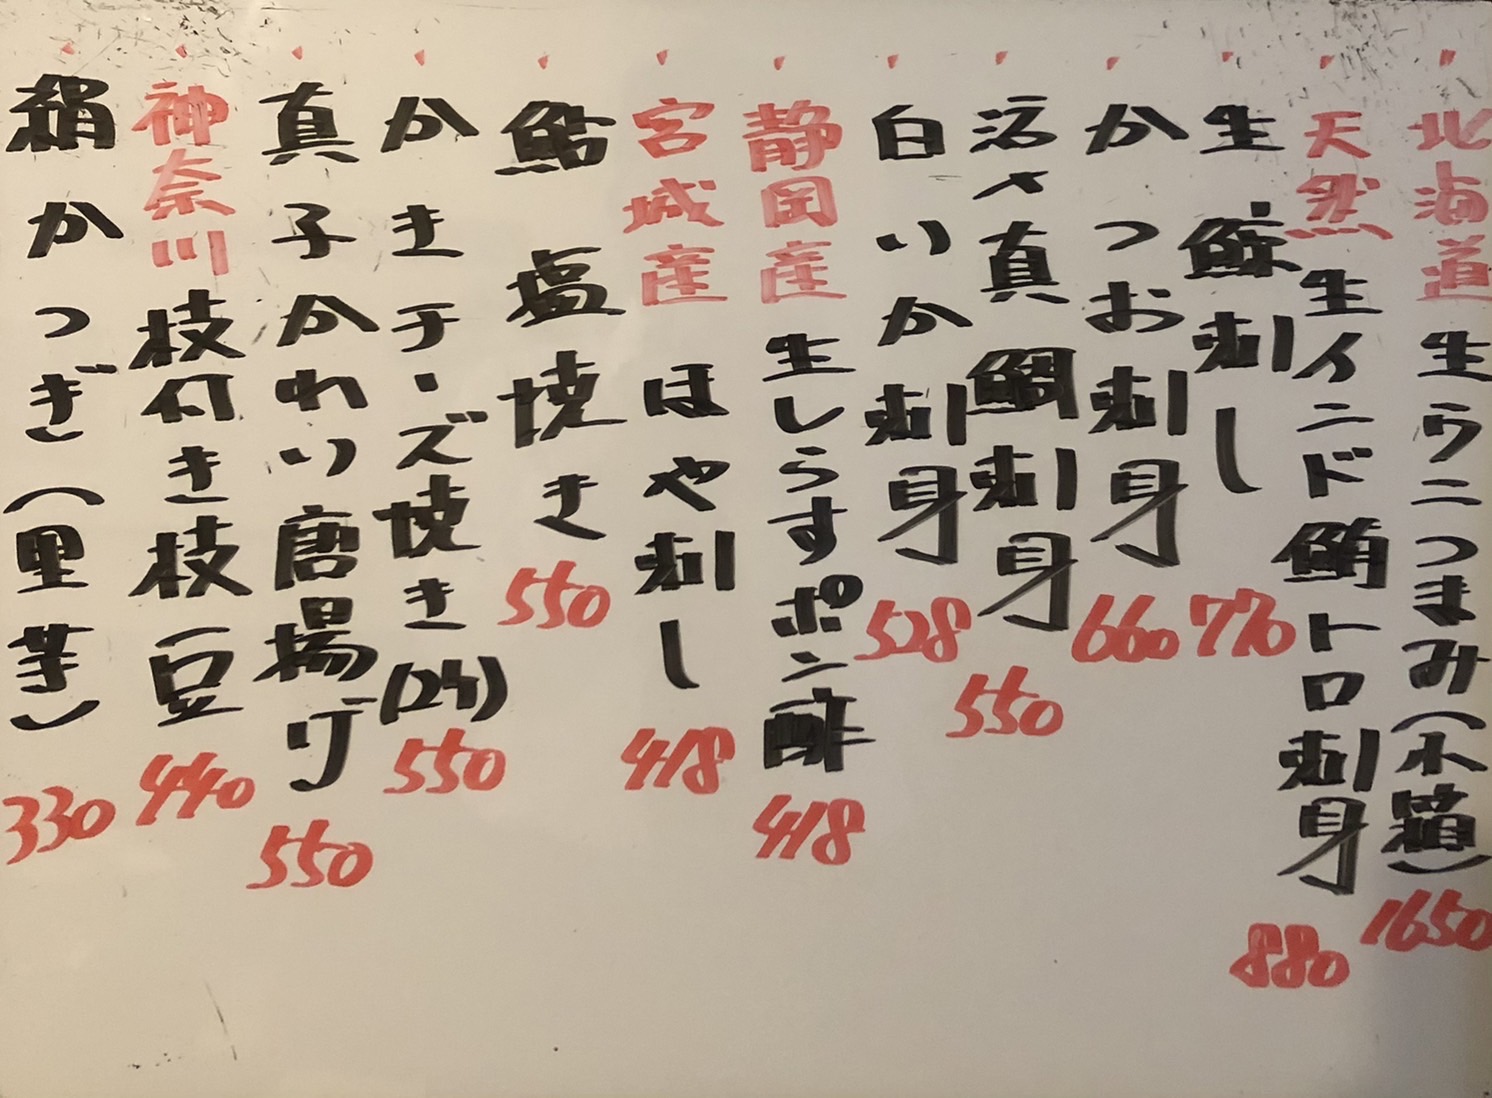 北海道 生ウニつまみ(小箱) 1650
天然 生インド鮪トロ刺身 880
生鯨刺し 770
かつお刺身 660
活〆真鯛刺身 550
白いか刺身 528
静岡産 生しらすポン酢 418
宮城産 ほや刺し 418
鮎 塩焼き 550
かきチーズ焼き(2ヶ) 550
真子かれい唐揚げ 550
神奈川 枝付き枝豆 440
絹かつぎ(里芋) 330